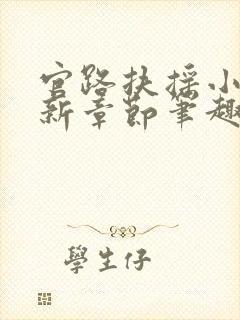 官路扶摇小
新章节笔趣
學生仔